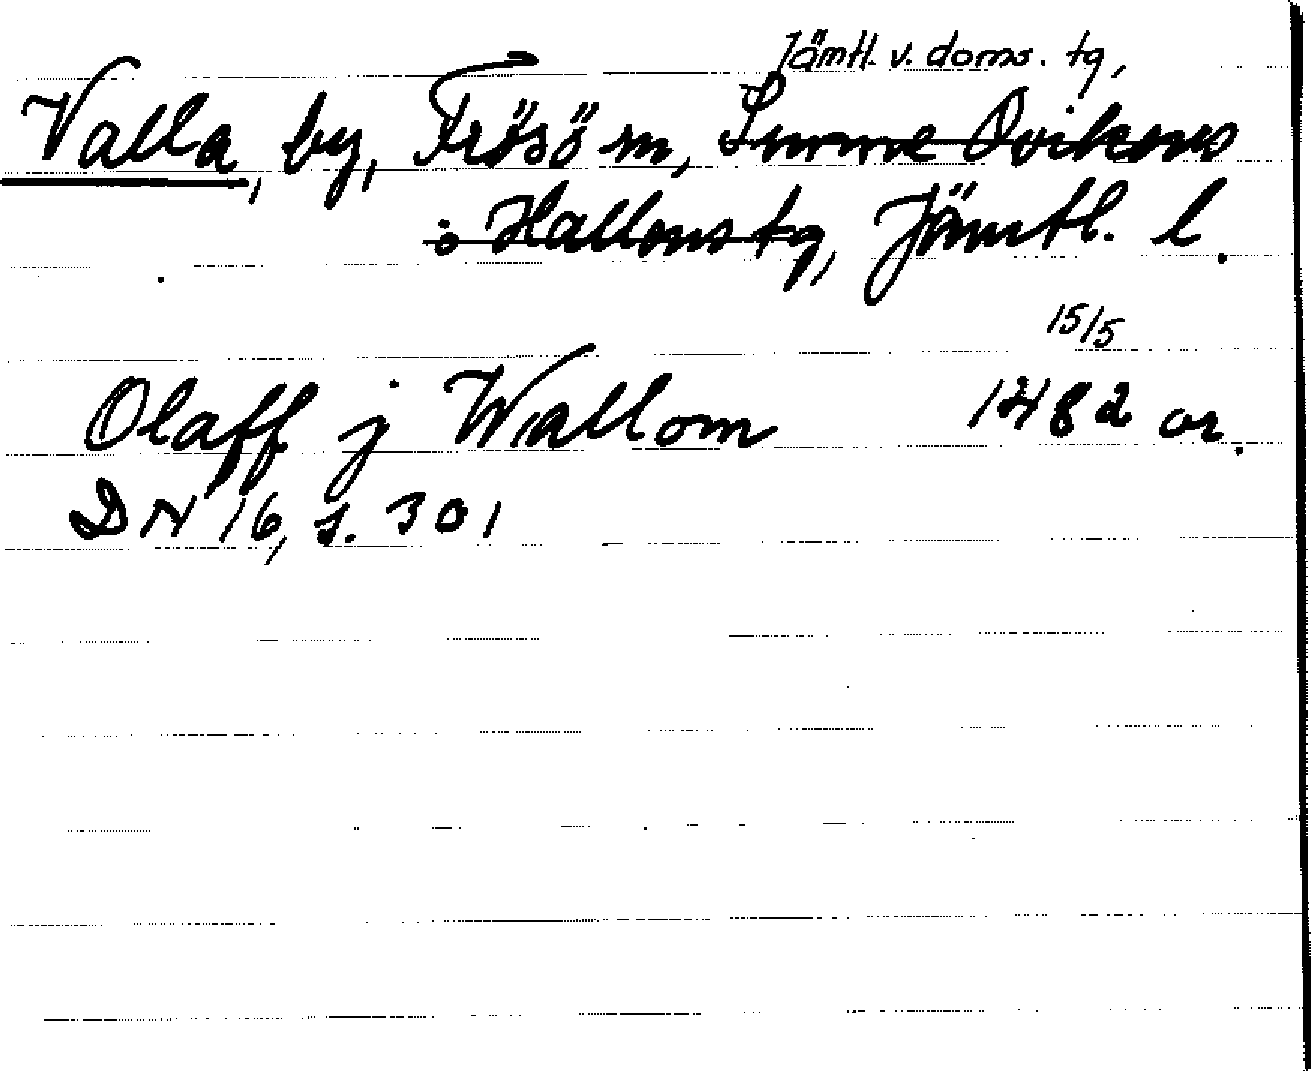 Jämtl. v. doms. tg,
Valla, by, Frösö sn, Sunne Ovikens
o Hallens tg, Jämtl. l.
15/5
Olaff j Wallom 1482 or.
DN 16, s. 301